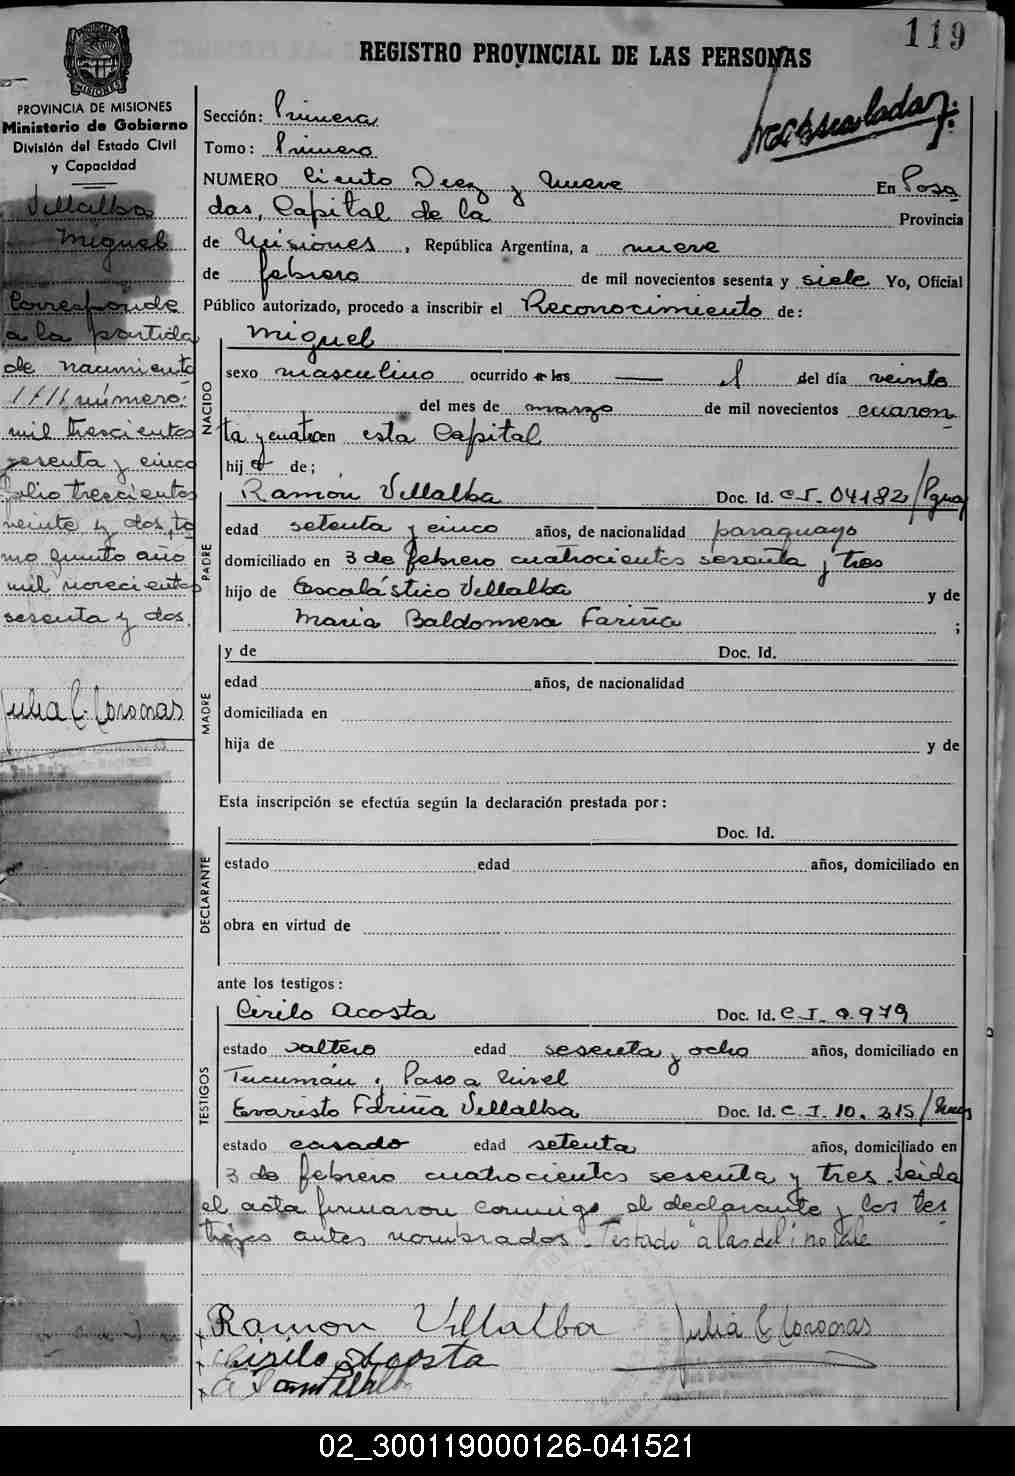 119
REGISTRO PROVINCIAL DE LAS PERSONAS
PROVINCIA DE MISIONES
Ministerio de Gobierno
División del Estado Civil
y Capacidad
Villalba
Miguel
Corresponde
a la partida
de nacimiento
número:
mil trescientos
sesenta y cinco
folio trescientos
veinte y dos, to
mo quinto año
mil novecientos
sesenta y dos.
Julia C. Coronas
Sección: Primera
Tomo: Primero
NUMERO Ciento Diez y nueve En Posa
das, Capital de la Provincia
de Misiones, República Argentina, a nueve
de febrero de mil novecientos sesenta y siete Yo, Oficial
Público autorizado, procedo a inscribir el Reconocimiento de:
NACIDO
Miguel
sexo masculino ocurrido a las — el del día veinte
del mes de marzo de mil novecientos cuaren
ta y cuatro en esta Capital
hijo de;
PADRE
Ramón Villalba Doc. Id. C.I. 04182/Pguay
edad setenta y cinco años, de nacionalidad paraguayo
domiciliado en 3 de febrero cuatrocientos sesenta y tres
hijo de Escolástico Villalba y de
María Baldomera Fariña ;
MADRE
y de Doc. Id.
edad años, de nacionalidad
domiciliada en
hija de y de
Esta inscripción se efectúa según la declaración prestada por:
DECLARANTE
Doc. Id.
estado edad años, domiciliado en
obra en virtud de
ante los testigos:
TESTIGOS
Cirilo Acosta Doc. Id. C.I. 9.979
estado soltero edad sesenta y ocho años, domiciliado en
Tucumán y Paso a Nivel
Evaristo Fariña Villalba Doc. Id. C.I. 10.215/
estado casado edad setenta años, domiciliado en
3 de febrero cuatrocientos sesenta y tres. Leida
el acta firmaron conmigo el declarante y los tes
tigos antes nombrados. Testado "a las del" no vale
Ramon Villalba Julia C. Coronas
Cirilo Acosta
02_300119000126-041521